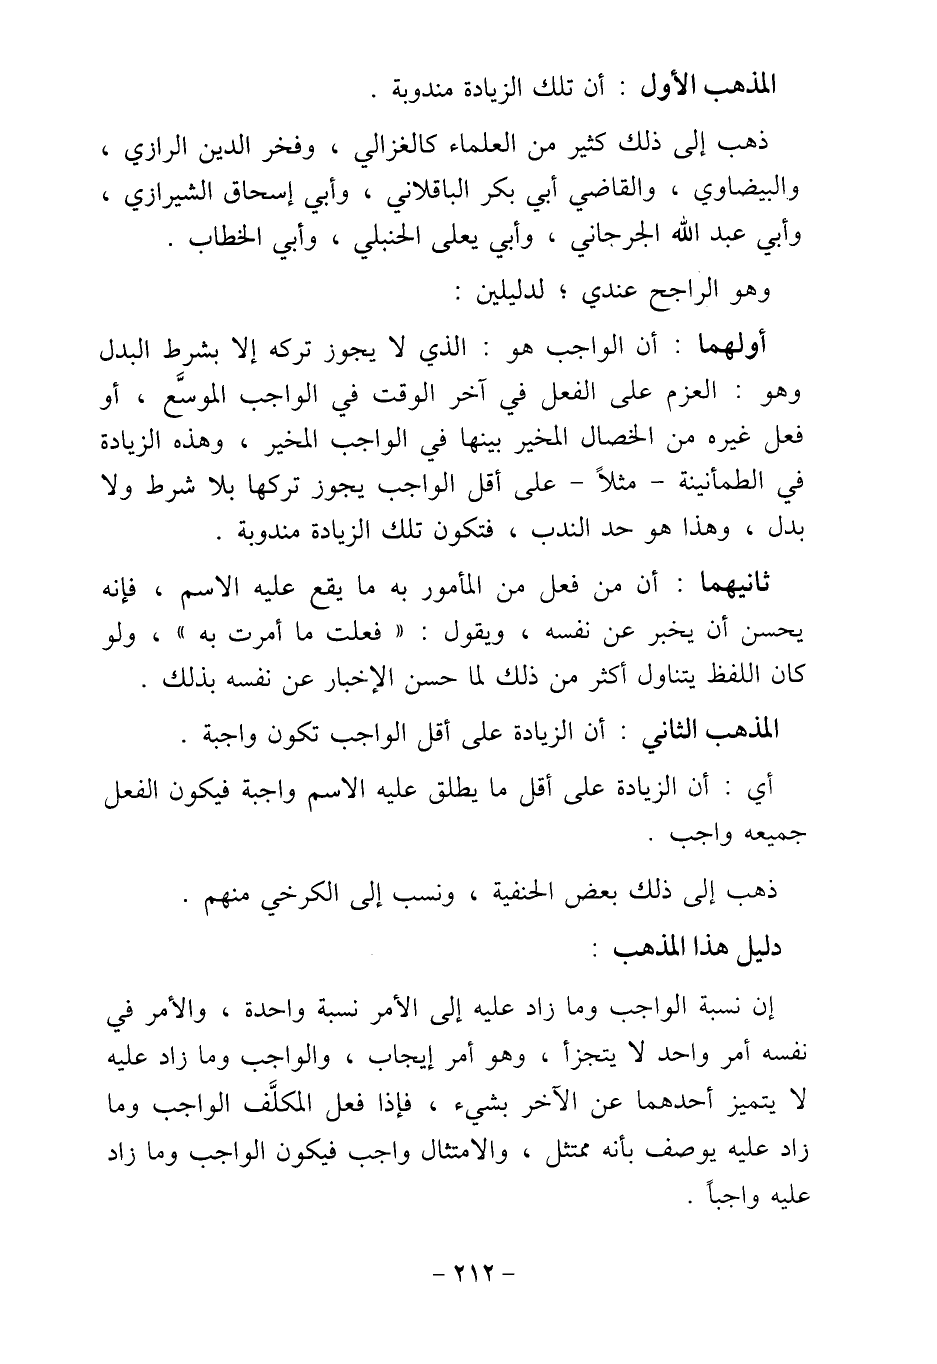 المذهب الأول : أن تلك الزيادة مندوبة .
ذهب إلى ذلك كثير من العلماء كالغزالي ، وفخر الدين الرازي ،
والبيضاوي ، والقاضي أبي بكر الباقلاني ، وأبي إسحاق الشيرازي ،
وأبي عبد الله الجرجاني ، وأبي يعلى الحنبلي ، وأبي الخطاب .
وهو الراجح عندي ؛ لدليلين :
أولهما : أن الواجب هو : الذي لا يجوز تركه إلا بشرط البدل
وهو : العزم على الفعل في آخر الوقت في الواجب الموسَّع ، أو
فعل غيره من الخصال المخير بينها في الواجب المخير ، وهذه الزيادة
في الطمأنينة - مثلاً - على أقل الواجب يجوز تركها بلا شرط ولا
بدل ، وهذا هو حد الندب ، فتكون تلك الزيادة مندوبة .
ثانيهما : أن من فعل من المأمور به ما يقع عليه الاسم ، فإنه
يحسن أن يخبر عن نفسه ، ويقول : « فعلت ما أمرت به » ، ولو
كان اللفظ يتناول أكثر من ذلك لما حسن الإخبار عن نفسه بذلك .
المذهب الثاني : أن الزيادة على أقل الواجب تكون واجبة .
أي : أن الزيادة على أقل ما يطلق عليه الاسم واجبة فيكون الفعل
جميعه واجب .
ذهب إلى ذلك بعض الحنفية ، ونسب إلى الكرخي منهم .
دليل هذا المذهب :
إن نسبة الواجب وما زاد عليه إلى الأمر نسبة واحدة ، والأمر في
نفسه أمر واحد لا يتجزأ ، وهو أمر إيجاب ، والواجب وما زاد عليه
لا يتميز أحدهما عن الآخر بشيء ، فإذا فعل المكلَّف الواجب وما
زاد عليه يوصف بأنه ممتثل ، والامتثال واجب فيكون الواجب وما زاد
عليه واجباً .
- ٢١٢ -